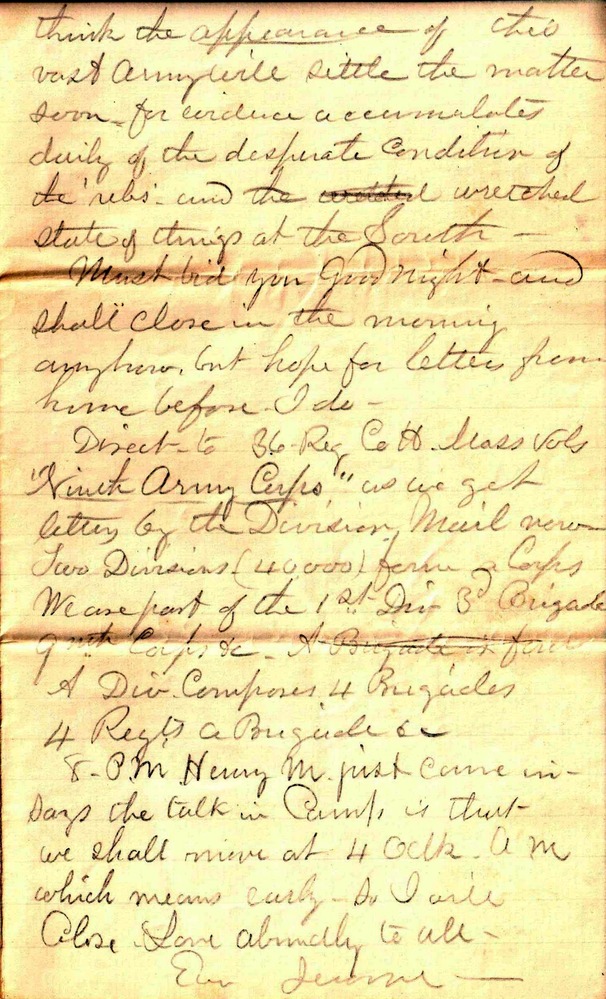 think the appearance of this
vast Army will settle the matter
soon - for evidence accumulates
daily of the desperate condition of
the 'rebs' - and the wretched
state of things at the South -
Must bid you Good night - and
shall close in the morning
anyhow, but hope for letters from
home before I do -
Direct - to 36 Reg Co H. Mass Vols
"Ninth Army Corps" as we get
letters by the Division Mail now -
Two Divisions (40000) form a Corps
We are part of the 1st Div 3d Brigade
9nth Corps &c - A Brigade is four
A Div. Composes 4 Brigades
4 Regts a Brigade &c
8 - P.M. Henry M. just came in -
says the talk in Camp is that
we shall move at 4 Oclk. A M
which means early - so I will
Close. Love abundly to all -
Ever Jerome -